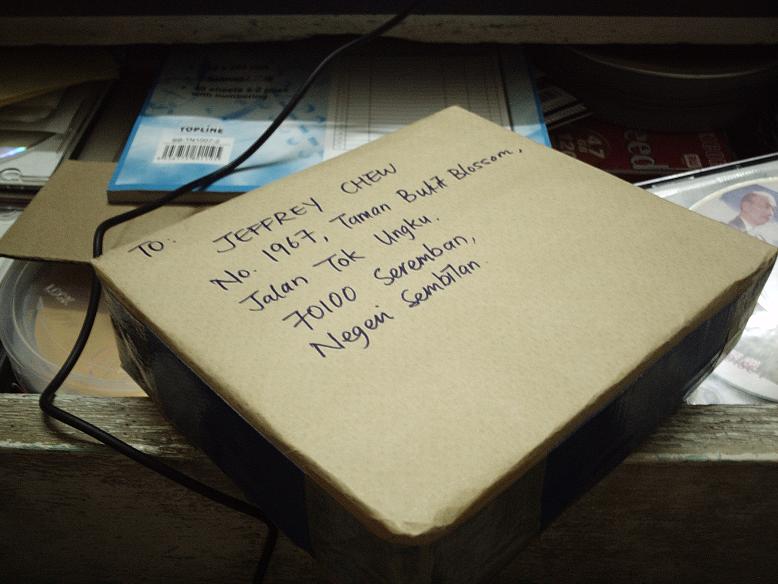 with numbering
TOPLINE
TO: JEFFREY CHEW
No. 1967, Taman Bukit Blossom,
Jalan Tok Ungku.
70100 Seremban,
Negeri Sembilan.
47